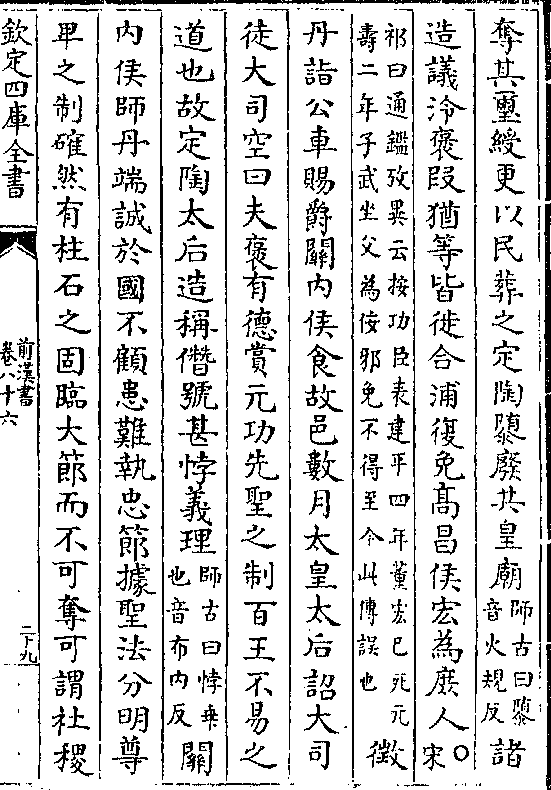 奪其璽綬更以民葬之定陶隳廢其皇廟
師古曰隳
音火規反
諸
造議泠褒段猶等皆徙合浦復免高昌侯宏為庶人○宋
祁曰通鑑攷異云按功臣表建平四年董宏已死元
壽二年子武坐父為佞邪免不得至今此傳誤也
徵
丹詣公車賜爵關內侯食故邑數月太皇太后詔大司
徒大司空曰夫褒有德賞元功先聖之制百王不易之
道也故定陶太后造稱僭號甚悖義理
師古曰悖乖
也音布內反
關
內侯師丹端誠於國不顧患難執忠節據聖法分明尊
卑之制確然有柱石之固臨大節而不可奪可謂社稷
欽定四庫全書
前漢書
卷八十六
二十九